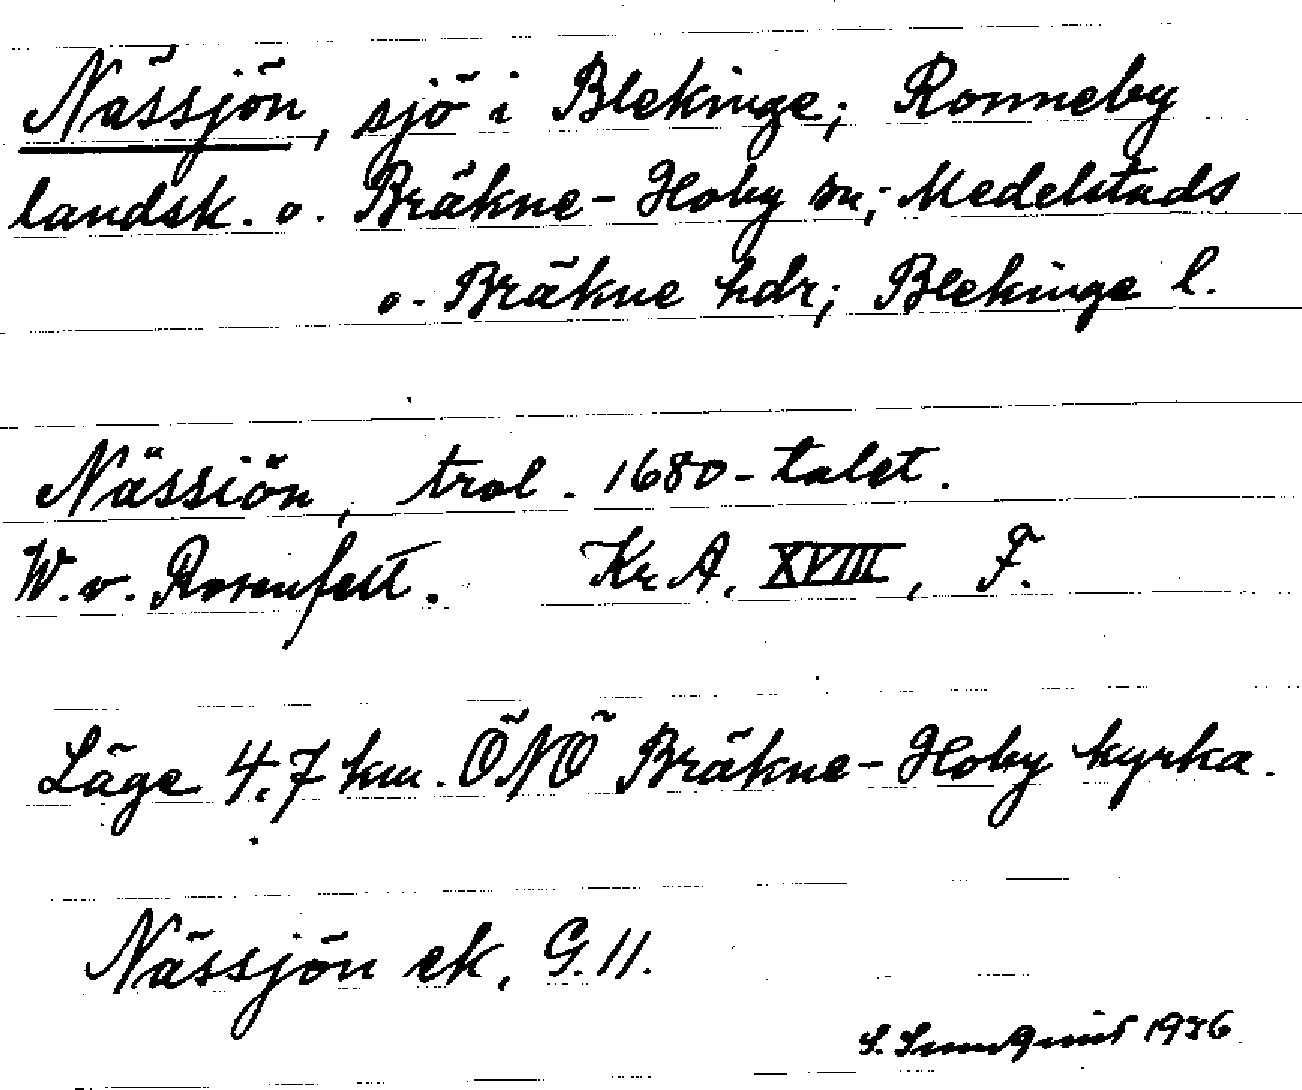 Nässjön, sjö i Blekinge; Ronneby
landsk. o. Bräkne-Hoby sn; Medelstads
o. Bräkne hdr; Blekinge l.
Nässiön, trol. 1680-talet.
W. v. Rosenfelt. Kr A. XVIII, F.
Läge 4,7 km. ÖNÖ Bräkne-Hoby kyrka.
Nässjön ek, G. 11.
S. 1936